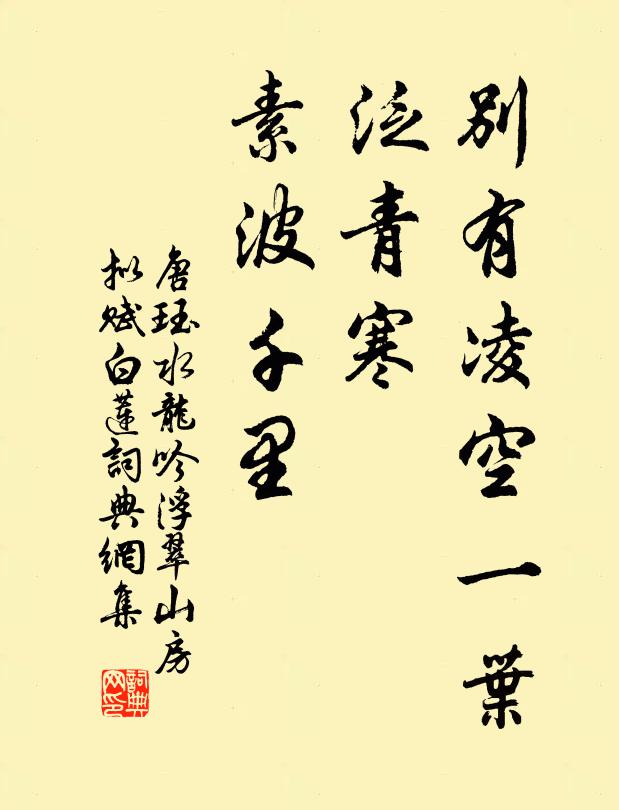 別有凌空一葉
泛青寒
素波千里
唐珏水龍吟浮翠山房
拟賦白蓮詞典網集
詞典
网印